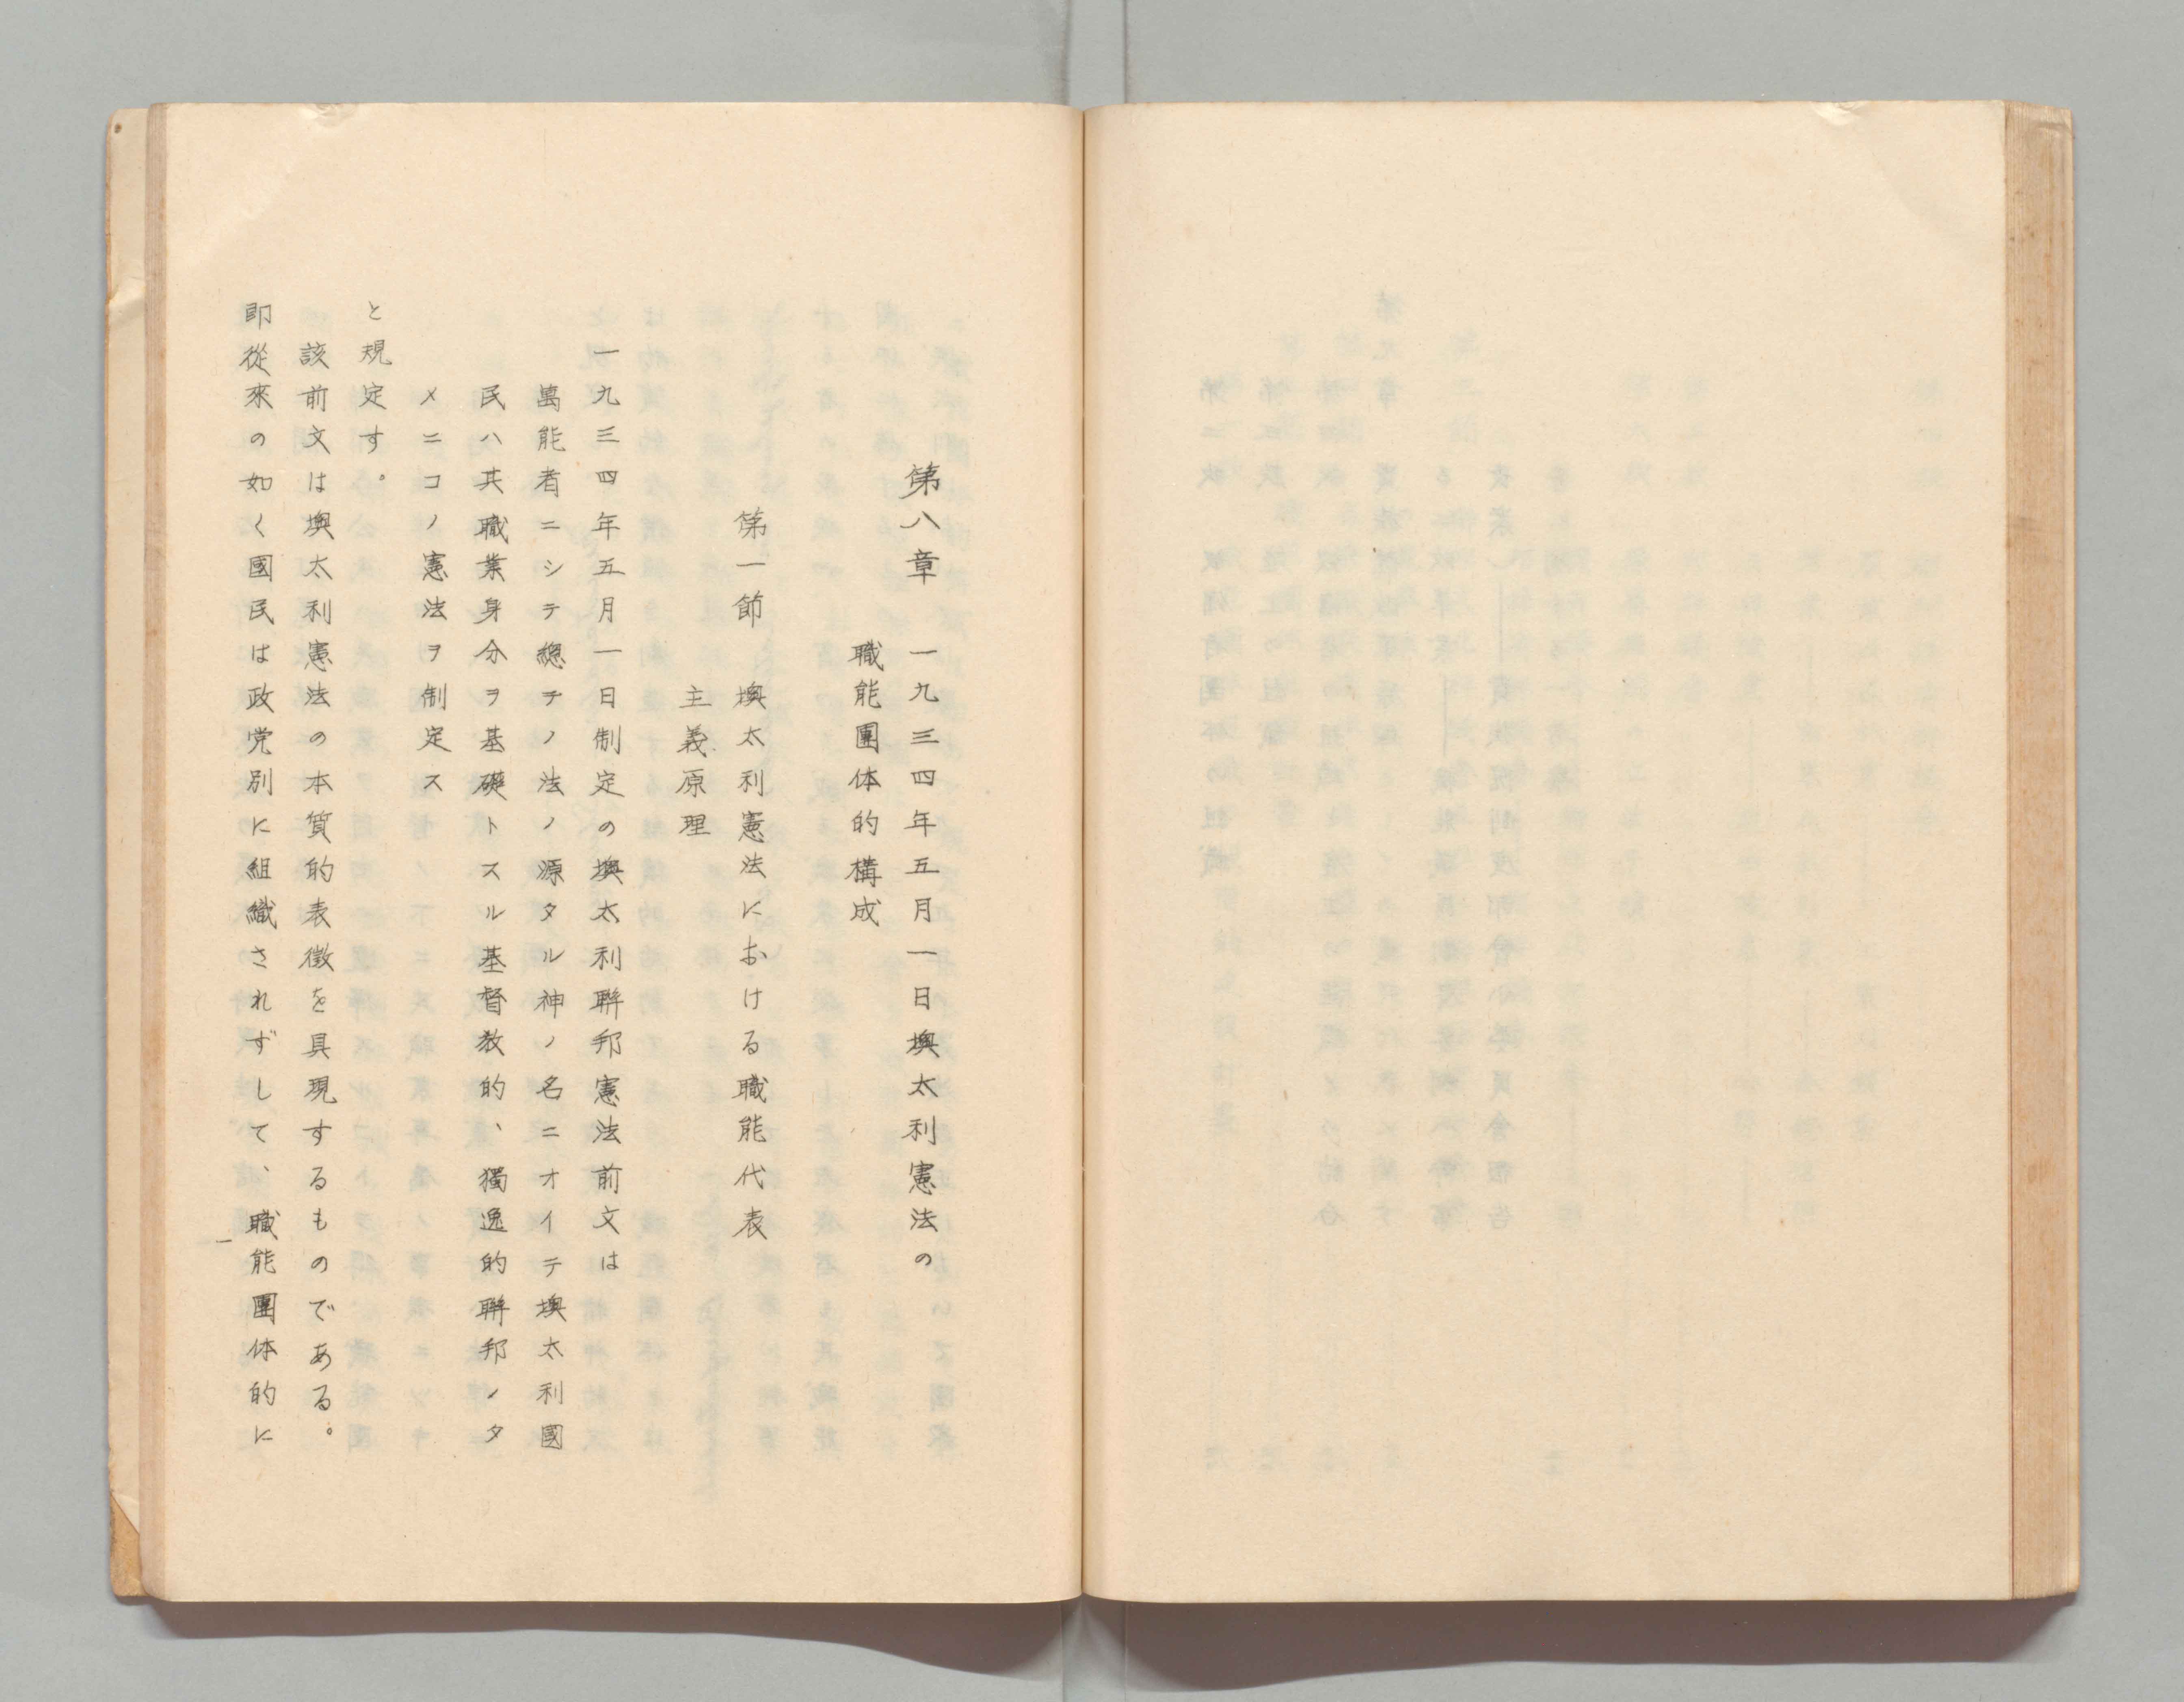 第八章　一九三四年五月一日墺太利憲法の
職能團体的構成
第一節　墺太利憲法における職能代表
主義原理
一九三四年五月一日制定の墺太利聯邦憲法前文は
萬能者ニシテ總テノ法ノ源タル神ノ名ニオイテ墺太利國
民ハ其職業身分ヲ基礎トスル基督教的、獨逸的聯邦ノタ
メニコノ憲法ヲ制定ス
と規定す。
該前文は墺太利憲法の本質的表徴を具現するものである。
即從來の如く國民は政党別に組織されずして、職能團体的に
一